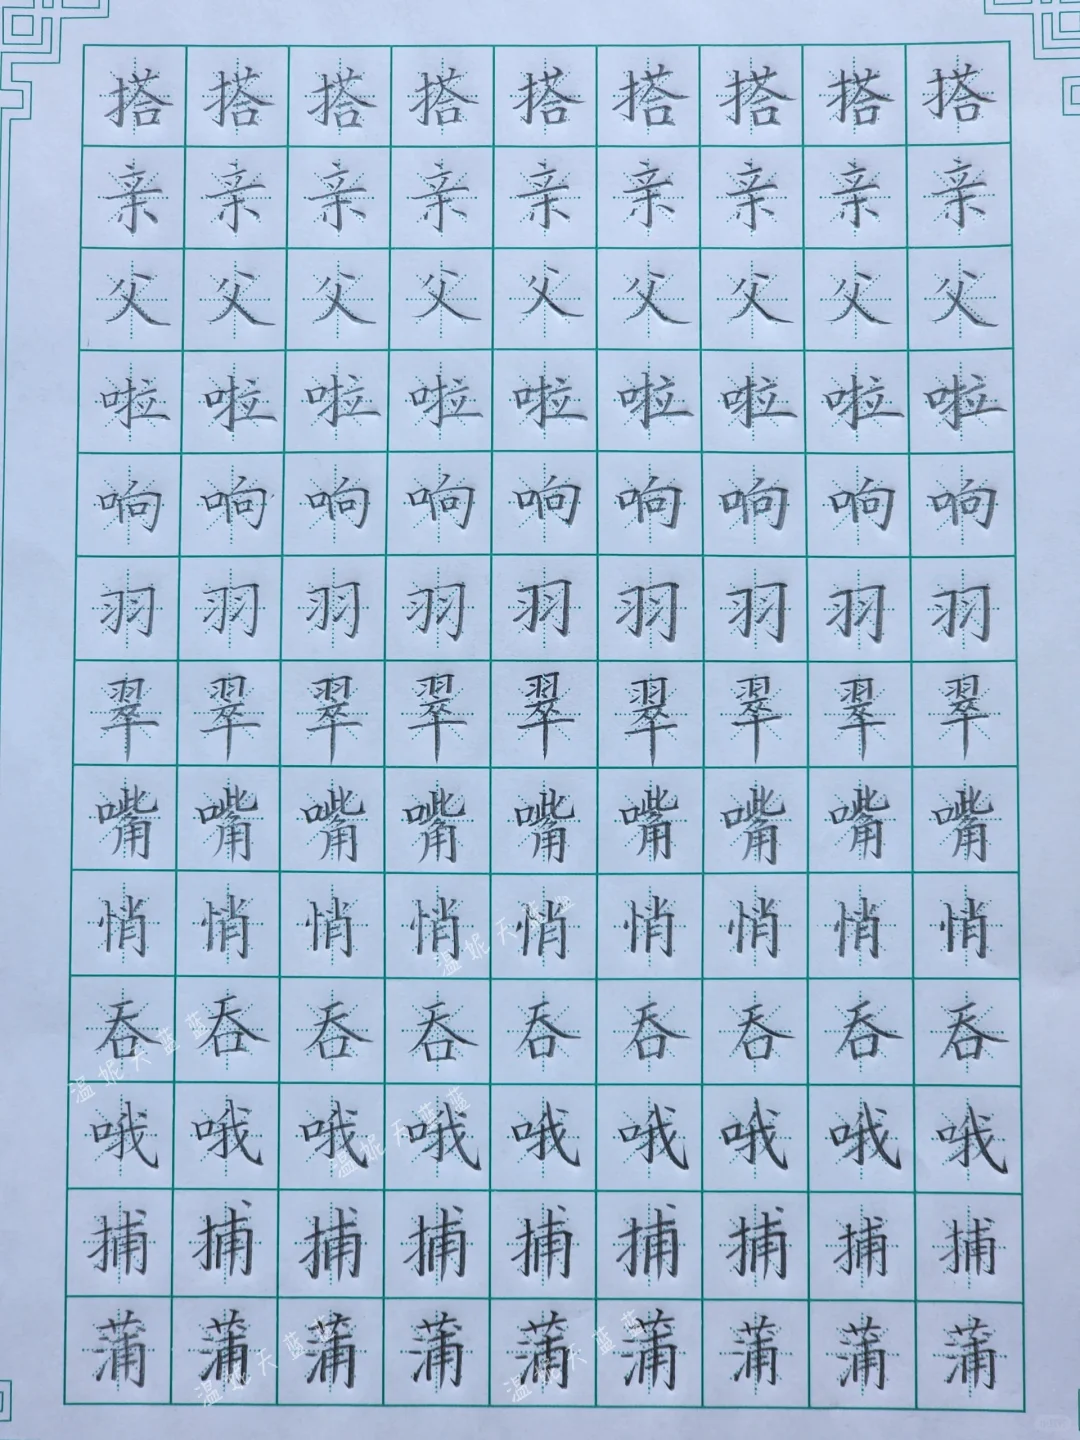 搭搭搭搭搭搭搭搭搭
亲亲亲亲亲亲亲亲亲
父父父父父父父父父
啦啦啦啦啦啦啦啦啦
响响响响响响响响响
羽羽羽羽羽羽羽羽羽
翠翠翠翠翠翠翠翠翠
嘴嘴嘴嘴嘴嘴嘴嘴嘴
悄悄悄悄悄悄悄悄悄
温妮天蓝蓝
吞吞吞吞吞吞吞吞吞
温妮天蓝蓝
哦哦哦哦哦哦哦哦哦
温妮天蓝蓝
捕捕捕捕捕捕捕捕捕
蒲蒲蒲蒲蒲蒲蒲蒲蒲
温妮天蓝蓝
温妮天蓝蓝